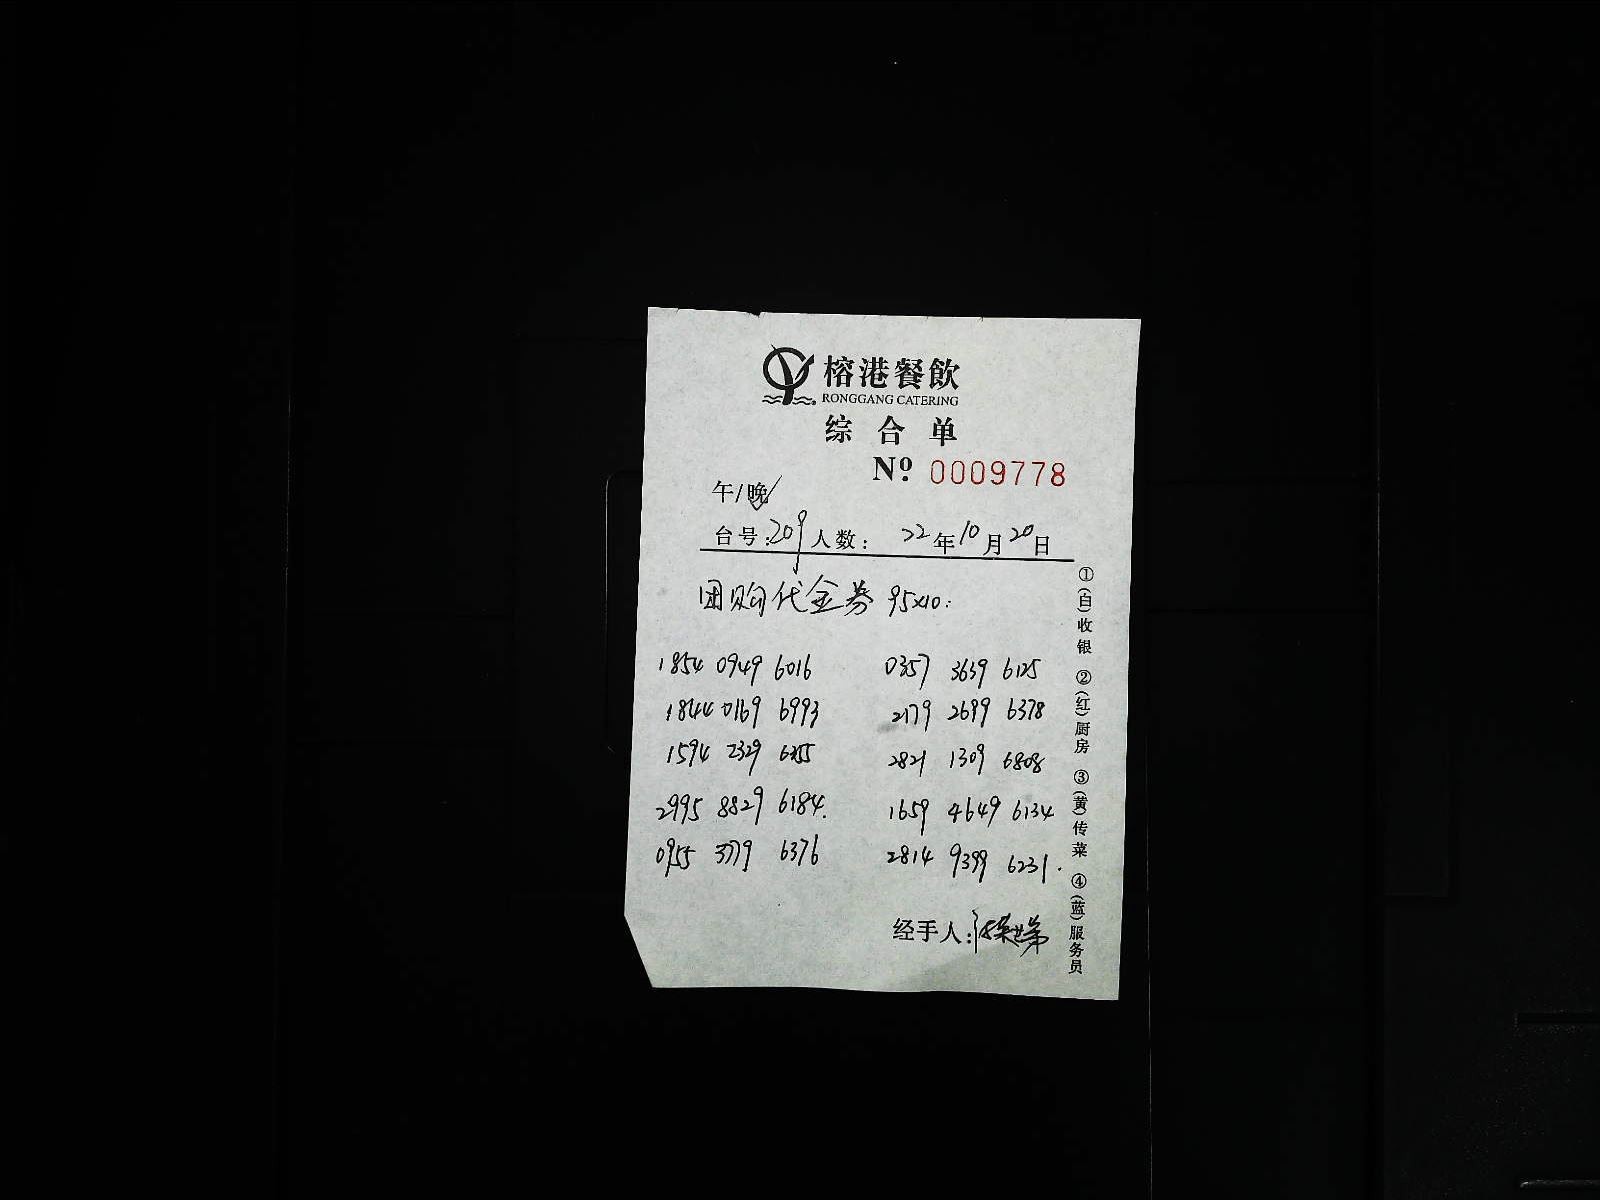 榕港餐飲
RONGGANG CATERING
综合单
Nº 0009778
午/晚
台号:209 人数: 22年10月20日
团购代金券 95x10:
1854 0949 6016 0357 3639 6125
1844 0169 6993 2179 2699 6378
1594 2329 6355 2821 1309 6808
2995 8829 6184. 1659 4649 6134
0955 3779 6376 2814 9399 6231.
经手人:
①(白)收银 ②(红)厨房 ③(黄)传菜 ④(蓝)服务员